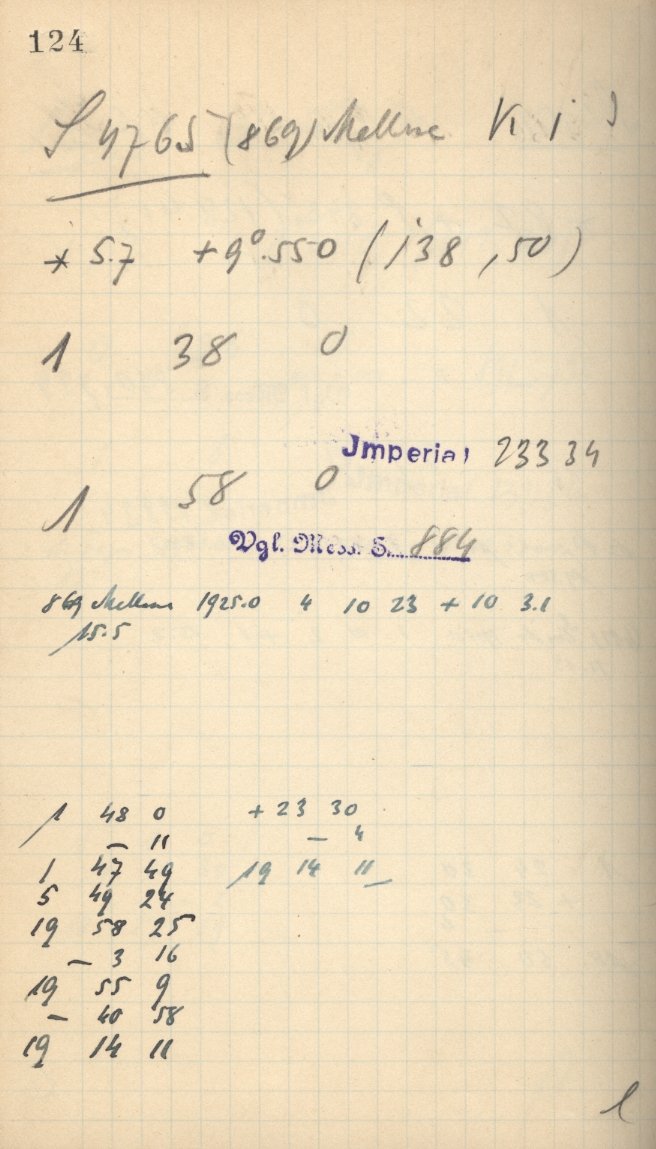 124
S 4765 (869) Mellena K i
* 5.7 +9°.550 (138,50)
1 38 0
Jmperial 233 34
1 58 0
Vgl. Mess. S. 884
869 Mellena 1925.0 4 10 23 + 10 3.1
15.5
1 48 0 + 23 30
– 11 – 4
1 47 49 19 14 11
5 49 24
19 58 25
– 3 16
19 55 9
– 40 58
19 14 11